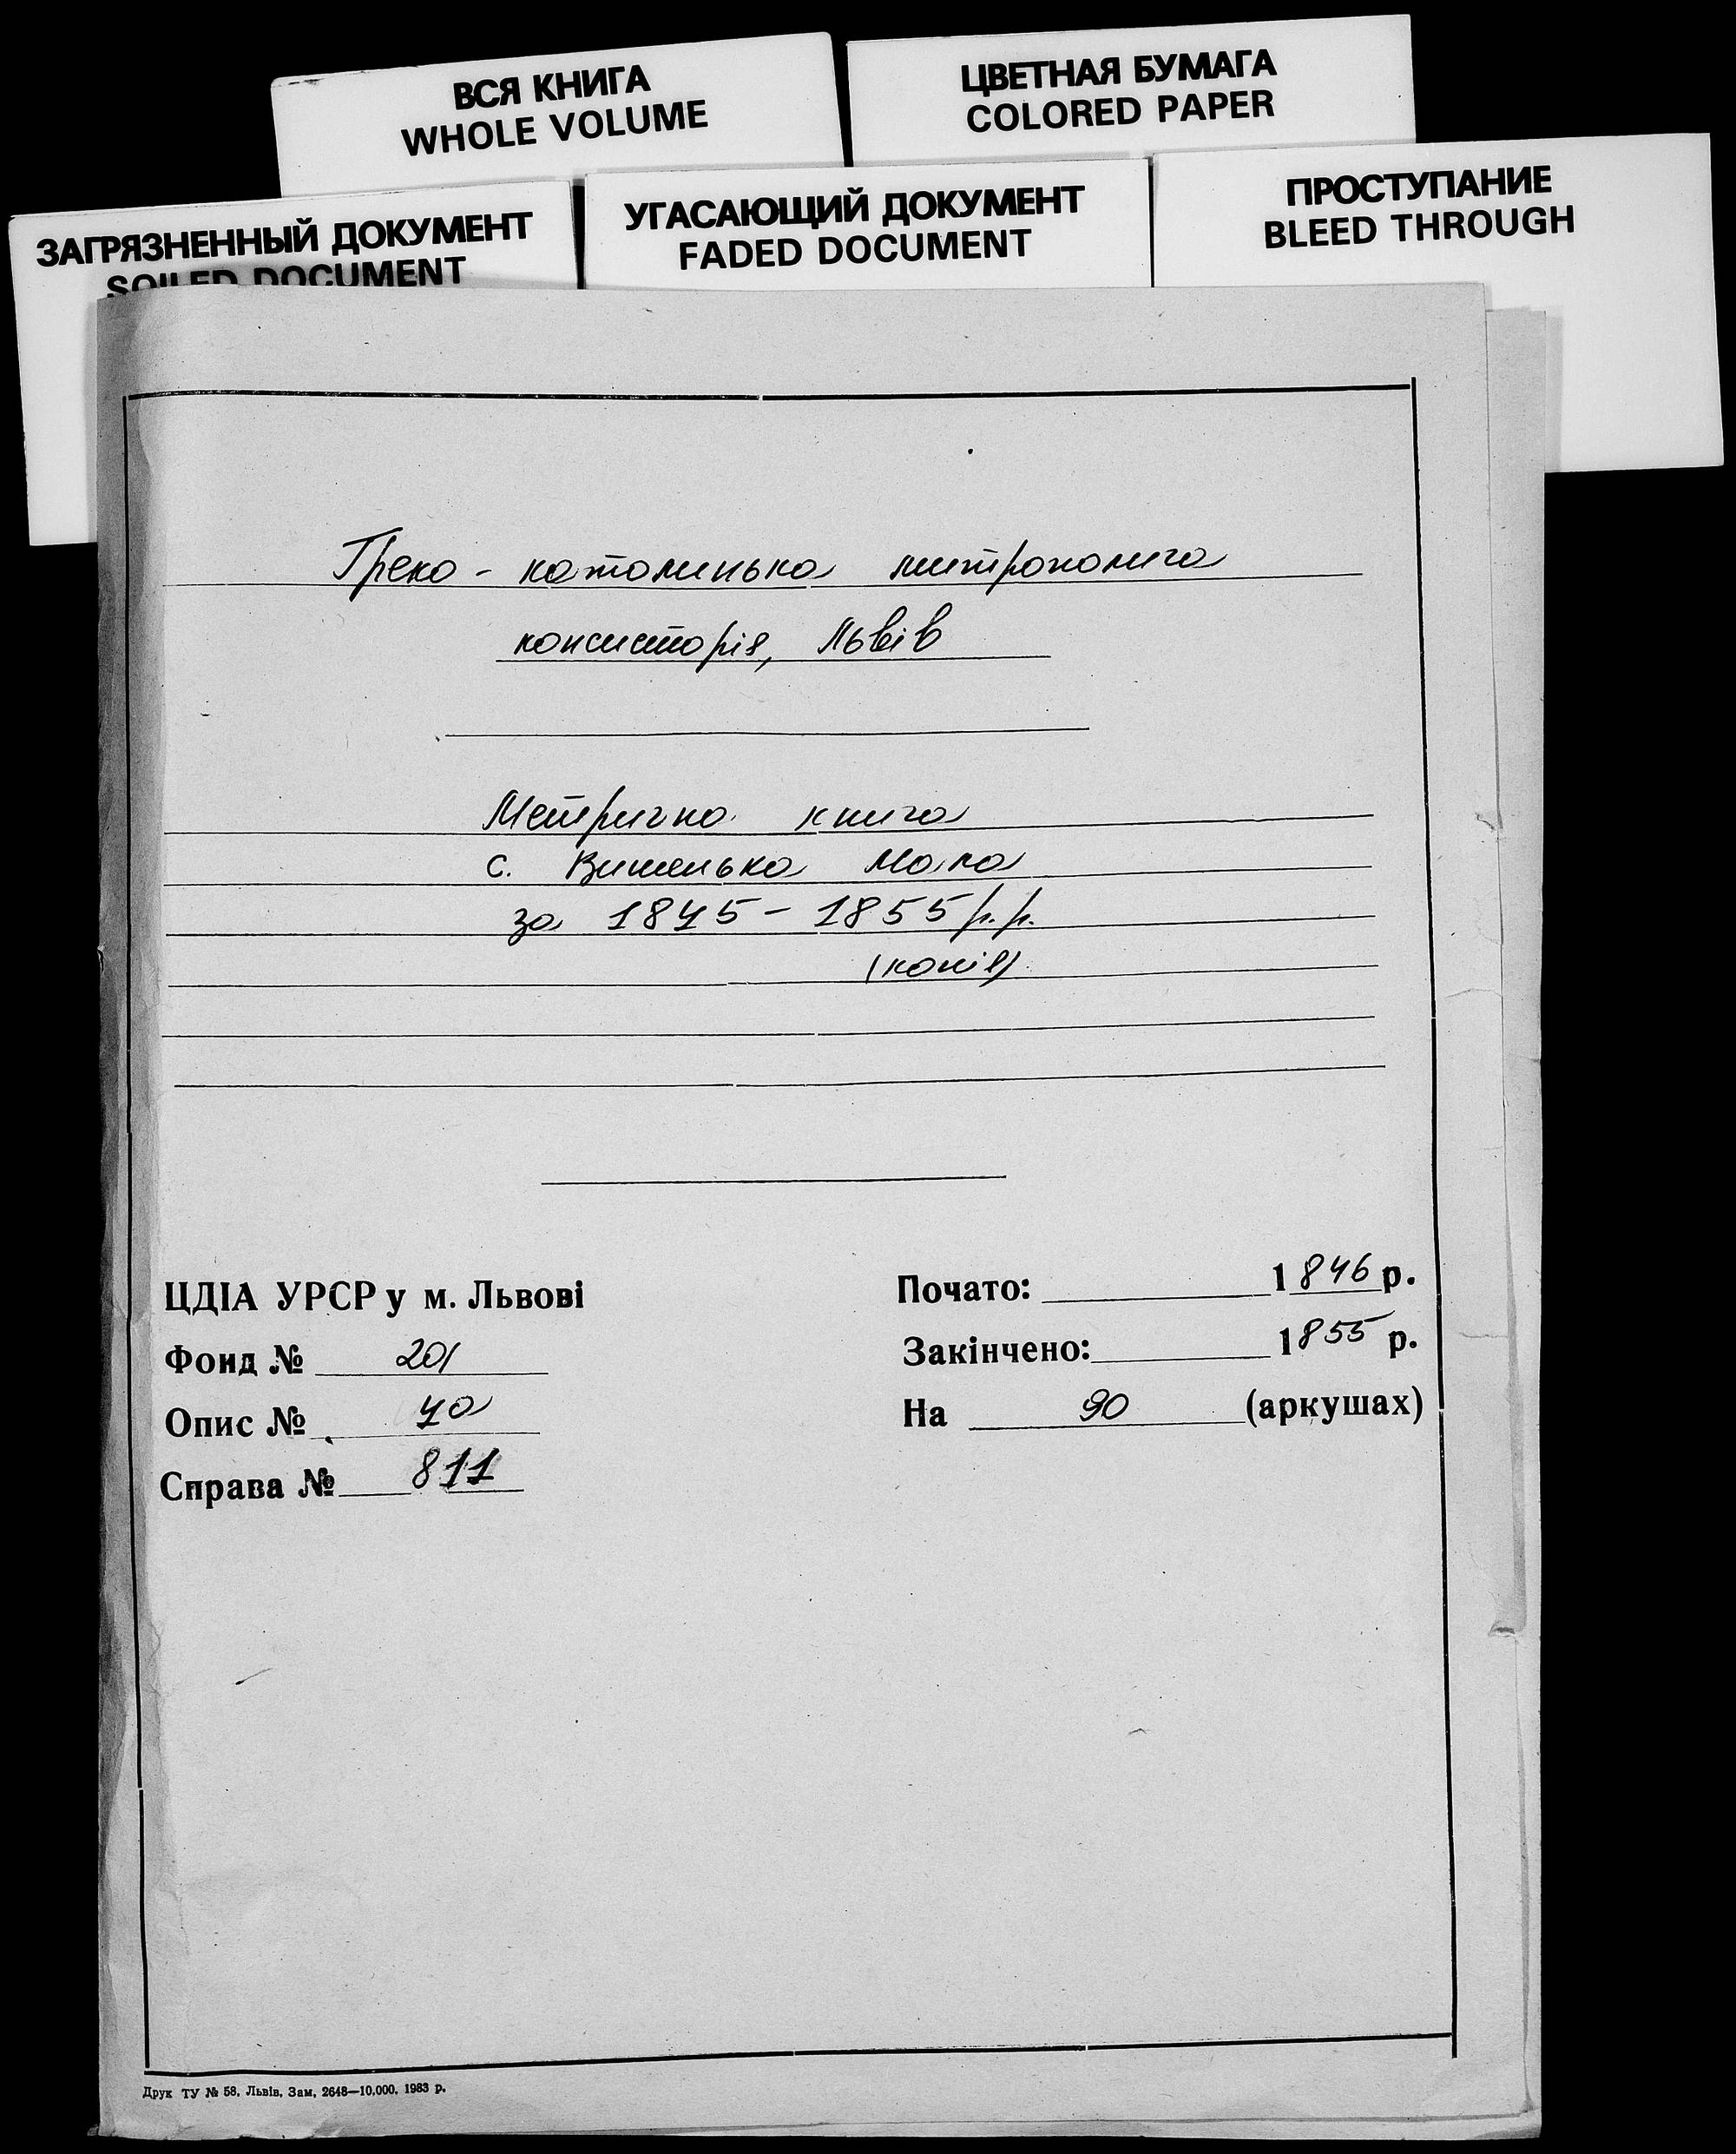 ВСЯ КНИГА
WHOLE VOLUME
ЦВЕТНАЯ БУМАГА
COLORED PAPER
ЗАГРЯЗНЕННЫЙ ДОКУМЕНТ
SOILED DOCUMENT
УГАСАЮЩИЙ ДОКУМЕНТ
FADED DOCUMENT
ПРОСТУПАНИЕ
BLEED THROUGH
Греко - католицька митрополича
консисторія, Львів
Метрична книга
с. Вишенька Мала
за 1845 - 1855 р.р.
(копія)
ЦДІА УРСР у м. Львові
Фонд № 201
Опис № 4а
Справа № 811
Почато: 1846 р.
Закінчено: 1855 р.
На 90 (аркушах)
Друк ТУ № 58, Львів, Зам, 2648—10,000. 1983 р.